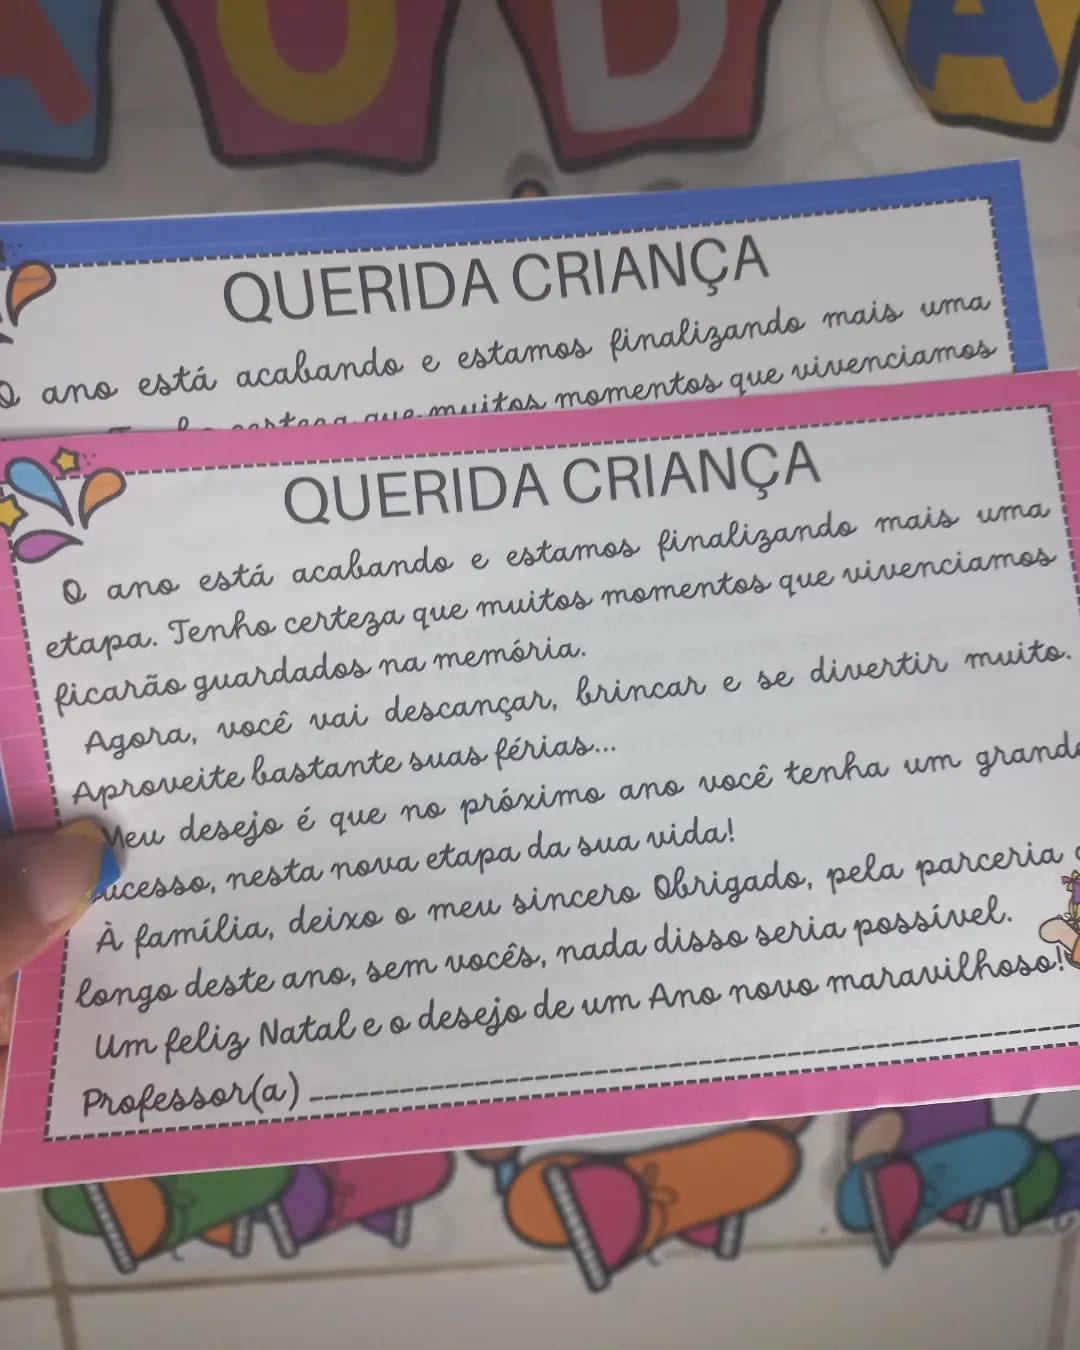 A U D A
QUERIDA CRIANÇA
O ano está acabando e estamos finalizando mais uma
que muitos momentos que vivenciamos
QUERIDA CRIANÇA
O ano está acabando e estamos finalizando mais uma
etapa. Tenho certeza que muitos momentos que vivenciamos
ficarão guardados na memória.
Agora, você vai descançar, brincar e se divertir muito.
Aproveite bastante suas férias...
Meu desejo é que no próximo ano você tenha um grande
sucesso, nesta nova etapa da sua vida!
À família, deixo o meu sincero Obrigado, pela parceria
longo deste ano, sem vocês, nada disso seria possível.
Um feliz Natal e o desejo de um Ano novo maravilhoso!
Professor(a)